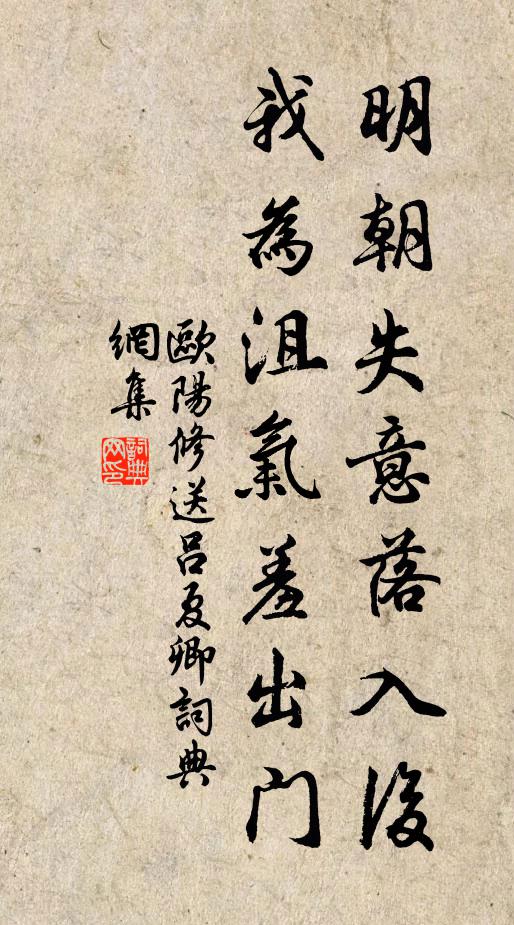 明朝失意落入後
我為沮氣羞出門
歐陽修送呂夏卿詞典
網集
詞典
网印